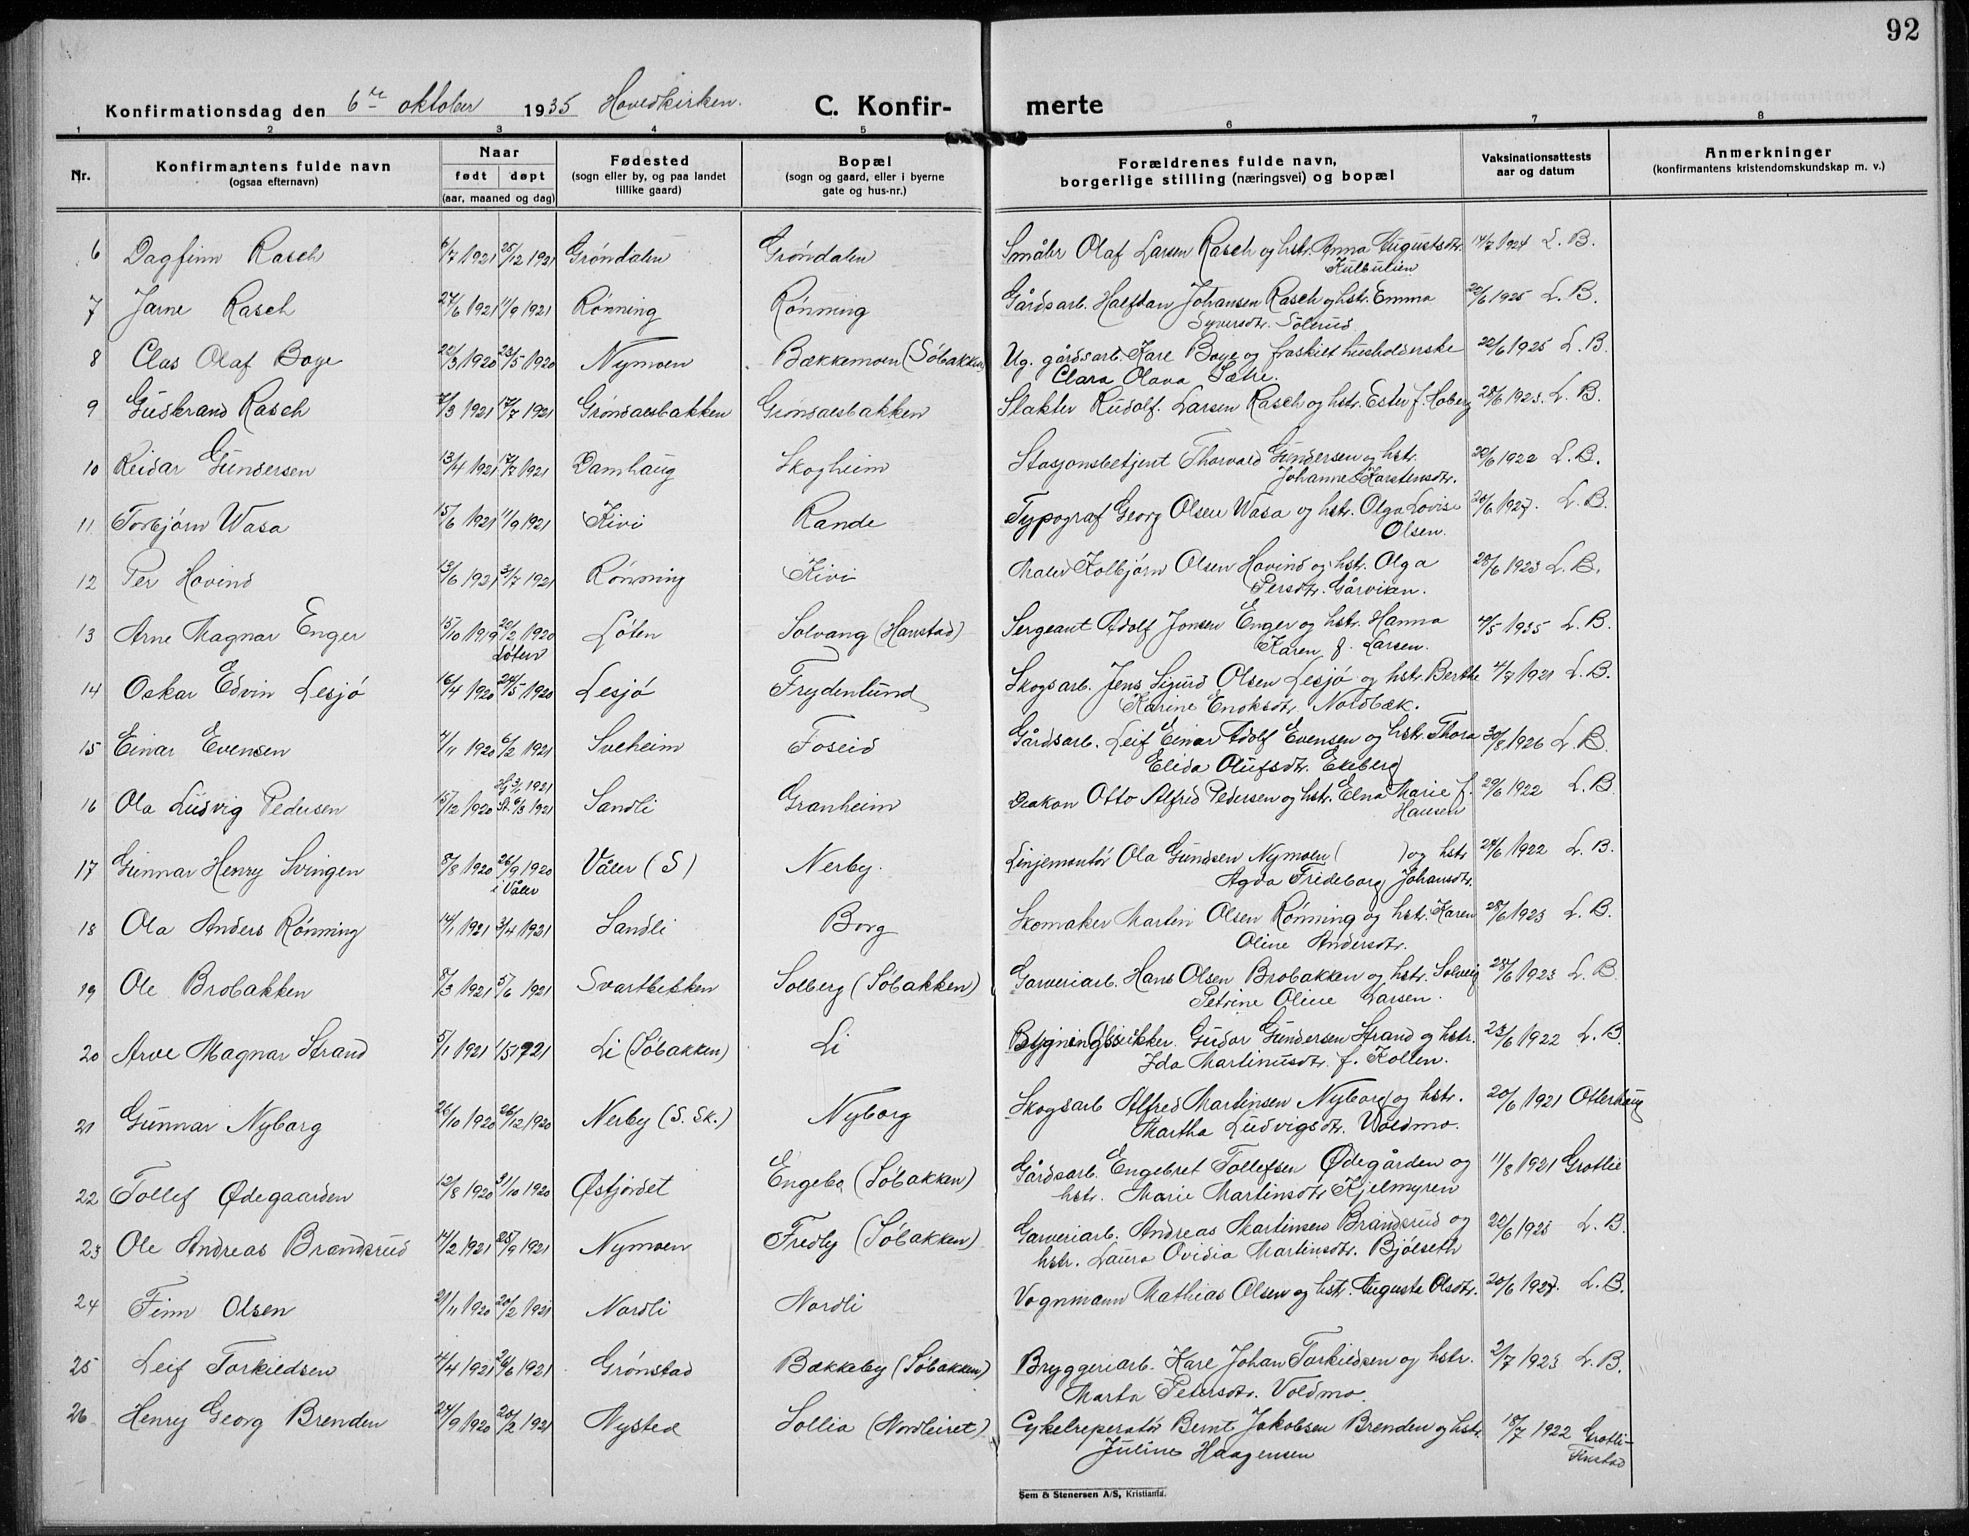 92
Konfirmationsdag den 6te oktober 1935 Hovedkirken. C. Konfir- merte
1 2 3 4 5 6 7 8
Nr. Konfirmantens fulde navn (ogsaa efternavn) Naar født døpt (aar, maaned og dag) Fødested (sogn eller by, og paa landet tillike gaard) Bopæl (sogn og gaard, eller i byerne gate og hus-nr.) Forældrenes fulde navn, borgerlige stilling (næringsvei) og bopæl Vaksinationsattests aar og datum Anmerkninger (konfirmantens kristendomskundskap m. v.)
6 Dagfinn Rasch 6/7 1921 25/12 1921 Grøndalen Grøndalen Småbr Olaf Larsen Rasch og hstr. Anna Augustsdtr. 14/7 1924 L. B.
Kulbulien
7 Jarne Rasch 27/6 1921 11/9 1921 Rønning Rønning Gårdsarb. Halfdan Johansen Rasch og hstr. Emma 22/6 1925 L. B.
Syversdtr. Sölerud
8 Clas Olaf Boye 22/3 1920 23/5 1920 Nymoen Bækkemoen (Søbakken) Ug. gårdsarb. Kare Boye og fraskilt husholderske 22/6 1925 L. B.
Clara Olava Sætre.
9 Gudbrand Rasch 7/3 1921 17/7 1921 Grøndalsbakken Grøndalsbakken Slakter Rudolf Larsen Rasch og hstr. Ester f. Hoberg 28/6 1923. L. B.
10 Reidar Gundersen 13/4 1921 17/7 1921 Damhaug Skogheim Stasjonsbetjent Thorvald Gundersen og hstr. 22/6 1922 L. B.
Johanne Karstensdtr.
11 Torbjørn Wasa 15/6 1921 11/9 1921 Kivi Rande Typograf Georg Olsen Wasa og hstr. Olga Lovise 20/6 1927. L. B.
Olsen.
12 Per Hovind 13/6 1921 31/7 1921 Rønning Kivi Maler Kolbjørn Olsen Hovind og hstr. Olga 28/6 1923 L. B.
Persdtr. Gårvikan.
13 Arne Magnar Enger 15/10 1919 22/2 1920 Løten Solvang (Hanstad) Sergeant Adolf Jonsen Enger og hstr. Hanna 4/5 1935 L. B.
Løten Karen f. Larsen.
14 Oskar Edvin Lesjø 16/4 1920 24/5 1920 Lesjø Frydenlund Skogsarb. Jens Sigurd Olsen Lesjø og hstr. Berthe 4/9 1921 L. B.
Karine Enoksdtr. Nordbæk.
15 Einar Evensen 4/11 1920 6/2 1921 Sveheim Foseid Gårdsarb. Leif Einar Adolf Evensen og hstr. Thora 30/8 1926 L. B.
Elida Olufsdtr. Ekeberg
Hj 3/1 1921
16 Ola Ludvig Pedersen 15/12 1920 St. 6/3 1921 Sandli Granheim Diakon Otto Alfred Pedersen og hstr. Elna Marie f. 29/6 1922 L. B.
Hansen
17 Gunnar Henry Svingen 8/8 1920 26/9 1920 Våler (S) Nerby. Linjemontør Ola Gundsen Nymoen ( ) og hstr 24/6 1922 L. B.
i Våler Agda Frideborg Johansdtr.
18 Ola Anders Rønning 14/1 1921 3/4 1921 Sandli Borg Skomaker Martin Olsen Rønning og hstr. Karen 28/6 1923 L. B.
Oline Andersdtr.
19 Ole Brobakken 8/3 1921 5/6 1921 Svartbekken Solberg (Søbakken) Garveriarb. Hans Olsen Brobakken og hstr. Solveig 28/6 1923 L. B.
Petrine Oline Larsen.
20 Arve Magnar Strand 5/1 1921 1/5 1921 Li (Søbakken) Li Bygningssnikker Gudar Gundersen Strand og hstr. 23/6 1922 L. B.
Ida Martinusdtr. f. Kollen.
21 Gunnar Nyborg 26/10 1920 26/12 1920 Nerby (S. Sk.) Nyborg Skogsarb Alfred Martinsen Nyborg og hstr. 20/6 1921 Otterhaug
Martha Ludvigsdtr. Voldmo.
22 Tollef Ødegaarden 12/8 1920 31/10 1920 Østjordet Engebo (Søbakken) Gårdsarb. Engebret Tollefsen Ødegården og 11/8 1921 Grotlie
hstr. Marie Martinsdtr Kjelmyren
23 Ole Andreas Brændsrud 14/2 1921 25/9 1921 Nymoen Fredly (Søbakken) Garveriarb. Andreas Martinsen Brandsrud og 22/6 1925 L. B.
hstr. Laura Ovidia Martinsdtr. Bjølseth
24 Finn Olsen 21/11 1920 20/2 1921 Nordli Nordli Vognmann Mathias Olsen og hstr. Auguste Olsdtr. 20/6 1927. L. B.
25 Leif Torkildsen 4/4 1921 26/6 1921 Grønstad Bækkeby (Søbakken) Bryggeriarb. Karl Johan Torkildsen og hstr. 2/7 1923 L. B.
Marta Petersdtr. Voldmo.
26 Henry Georg Brenden 24/9 1920 20/2 1921 Nysted Sollia (Nordleiret) Cykelreperatør Bernt Jakobsen Brenden og hstr. 18/7 1922 Grotli-
Juline Haagensen Finstad
Sem & Stenersen A/S, Kristiania.